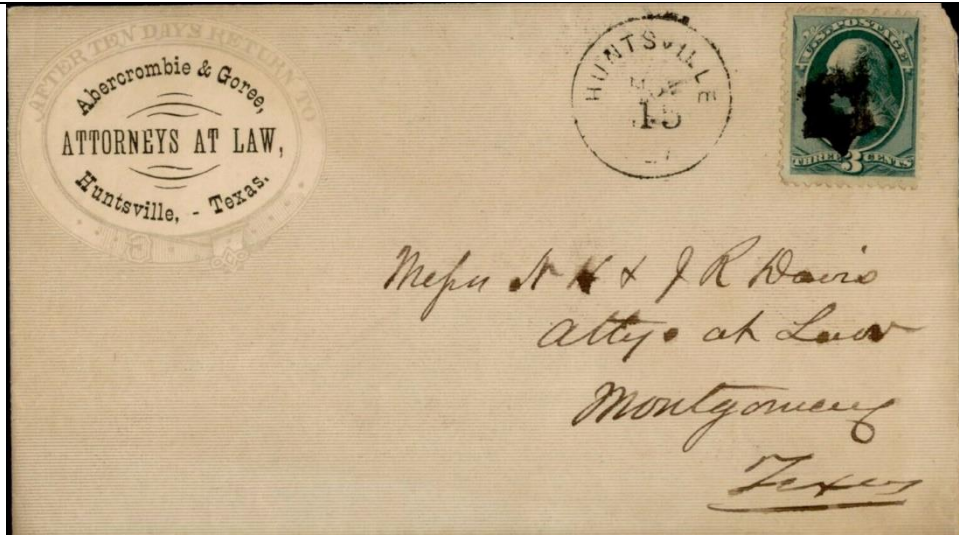 AFTER TEN DAYS RETURN TO
Abercrombie & Goree,
ATTORNEYS AT LAW,
Huntsville, - Texas.
HUNTSVILLE
NOV
15
U.S. POSTAGE
THREE 3 CENTS
Messrs N H & J R Davis
Attys at Law
Montgomery
Texas